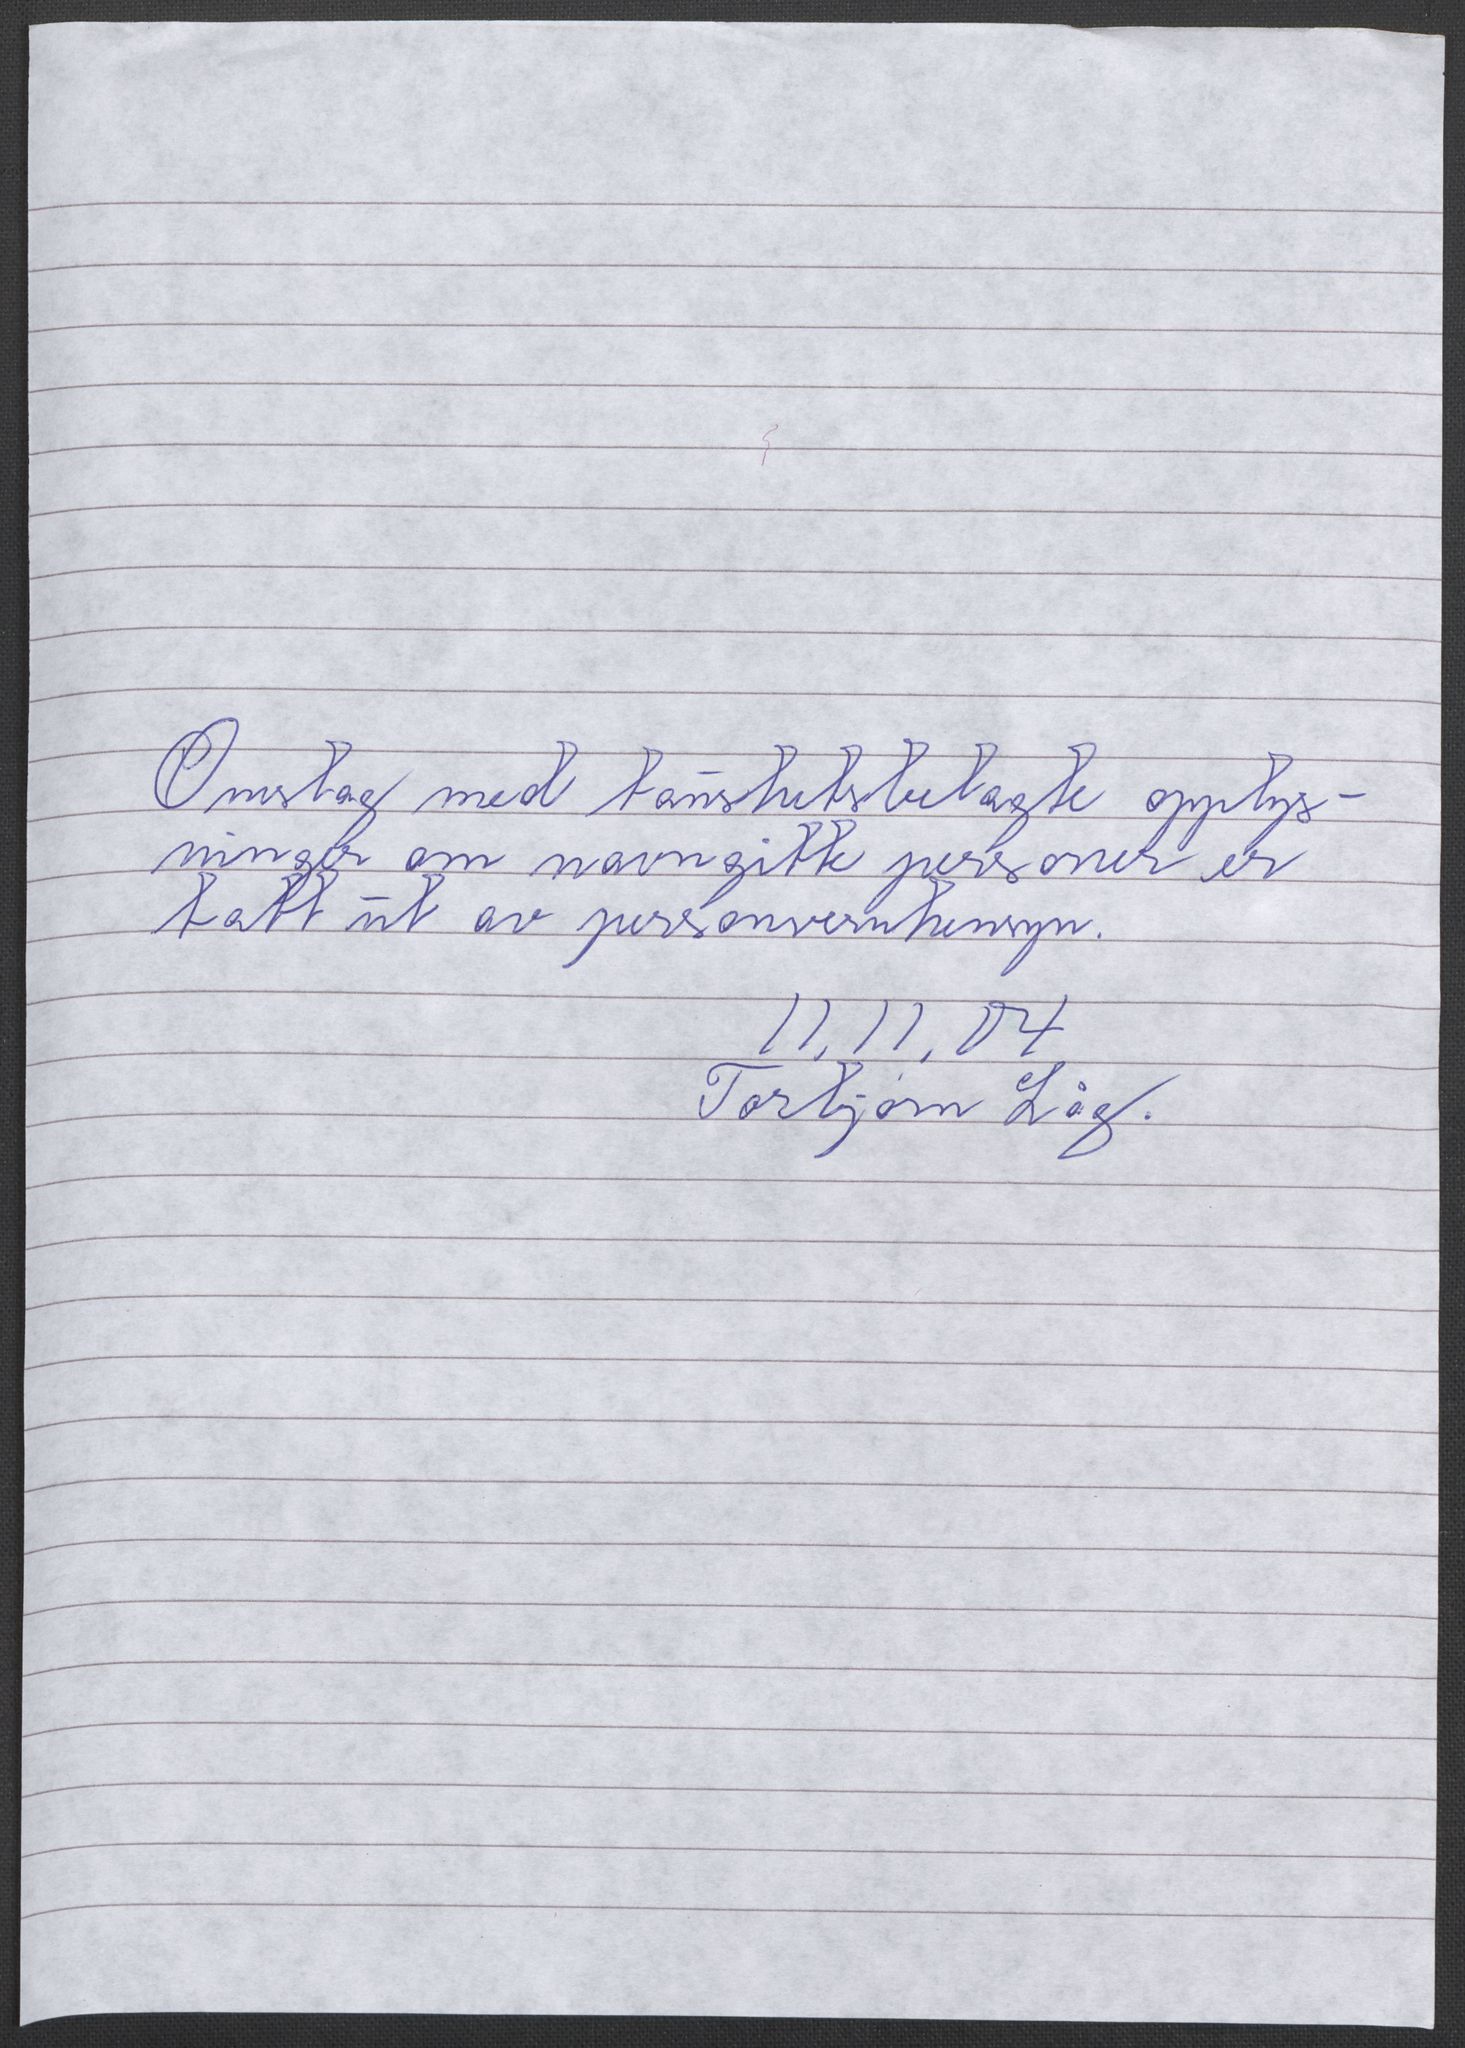 Omslag med taushetsbelagte opplys-
ninger om navngitte personer er
tatt ut av personvernhensyn.
11.11.04
Torbjørn Låg.